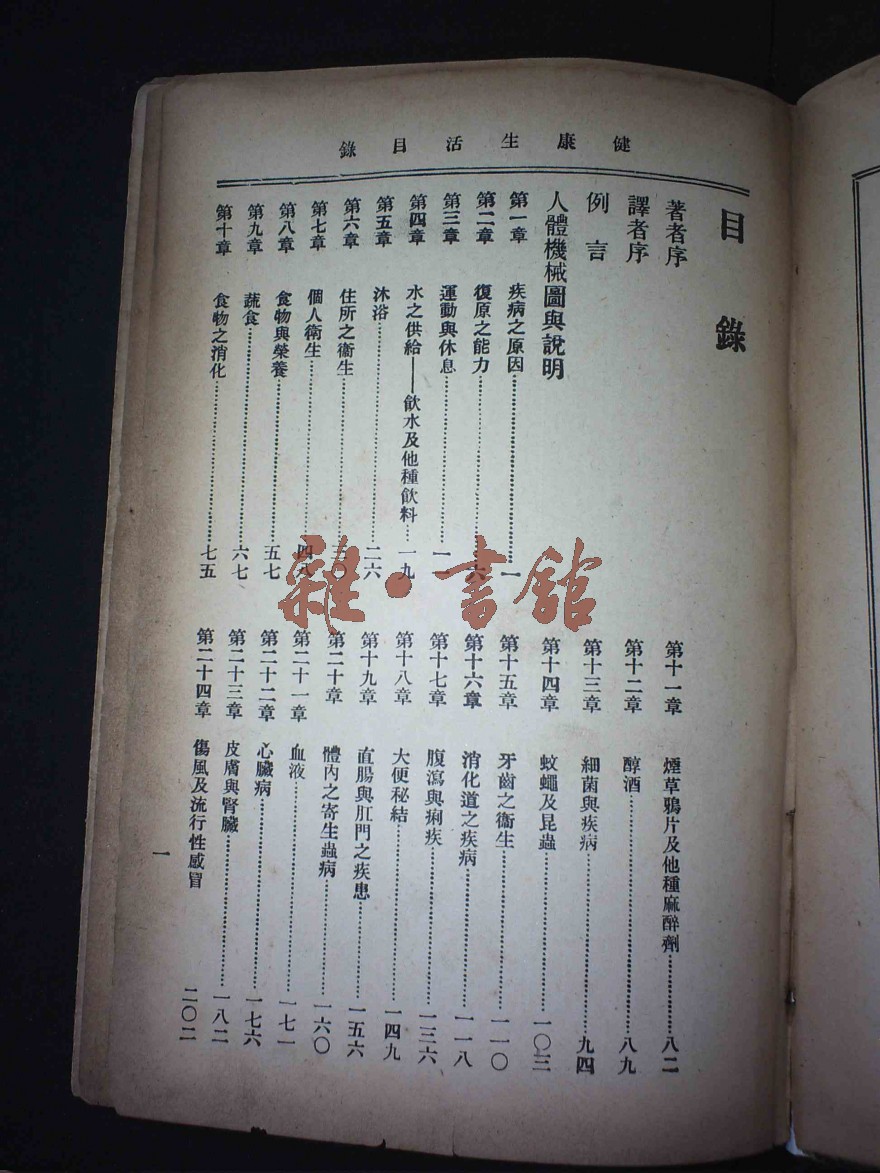 健康生活目錄
目錄
著者序
譯者序
例言
人體機械圖與說明
第一章 疾病之原因 一
第二章 復原之能力 六
第三章 運動與休息 一一
第四章 水之供給——飲水及他種飲料 一九
第五章 沐浴 二六
第六章 住所之衞生 三〇
第七章 個人衛生 四八
第八章 食物與榮養 五七
第九章 蔬食 六七
第十章 食物之消化 七五
第十一章 煙草鴉片及他種麻醉劑 八二
第十二章 醇酒 八九
第十三章 細菌與疾病 九四
第十四章 蚊蠅及昆蟲 一〇三
第十五章 牙齒之衞生 一一〇
第十六章 消化道之疾病 一一八
第十七章 腹瀉與痢疾 一三六
第十八章 大便秘結 一四九
第十九章 直腸與肛門之疾患 一五六
第二十章 體內之寄生蟲病 一六〇
第二十一章 血液 一七一
第二十二章 心臟病 一七六
第二十三章 皮膚與腎臟 一八二
第二十四章 傷風及流行性感冒 二〇二
一
雜·書舘